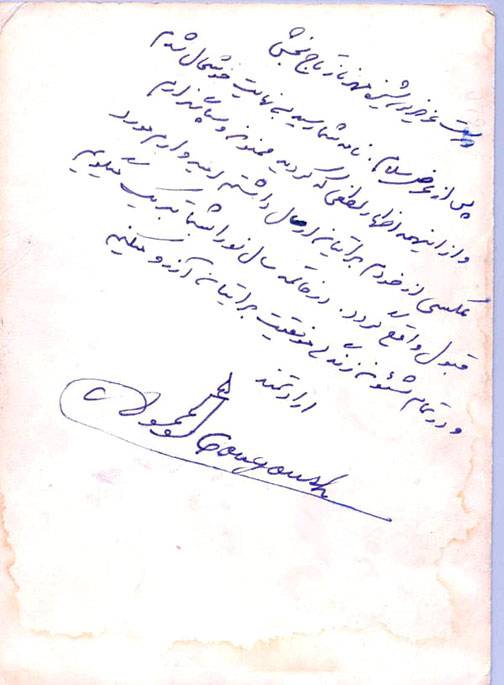 دوست عزیز دوشیزه مهرناز تاج بخشی
پس از عرض سلام. نامه شما رسید بی نهایت خوشحال شدم
و از اینهمه اظهار لطفی که کردید ممنونم و سپاسگزارم
عکسی از خودم برایتان ارسال داشتم امیدوارم مورد
قبول واقع گردد. در خاتمه سال نو را بشما تبریک میگویم
و در تمام شئون زندگی موفقیت برایتان آرزو میکنم
ارادتمند
گوگوش
Googoosh